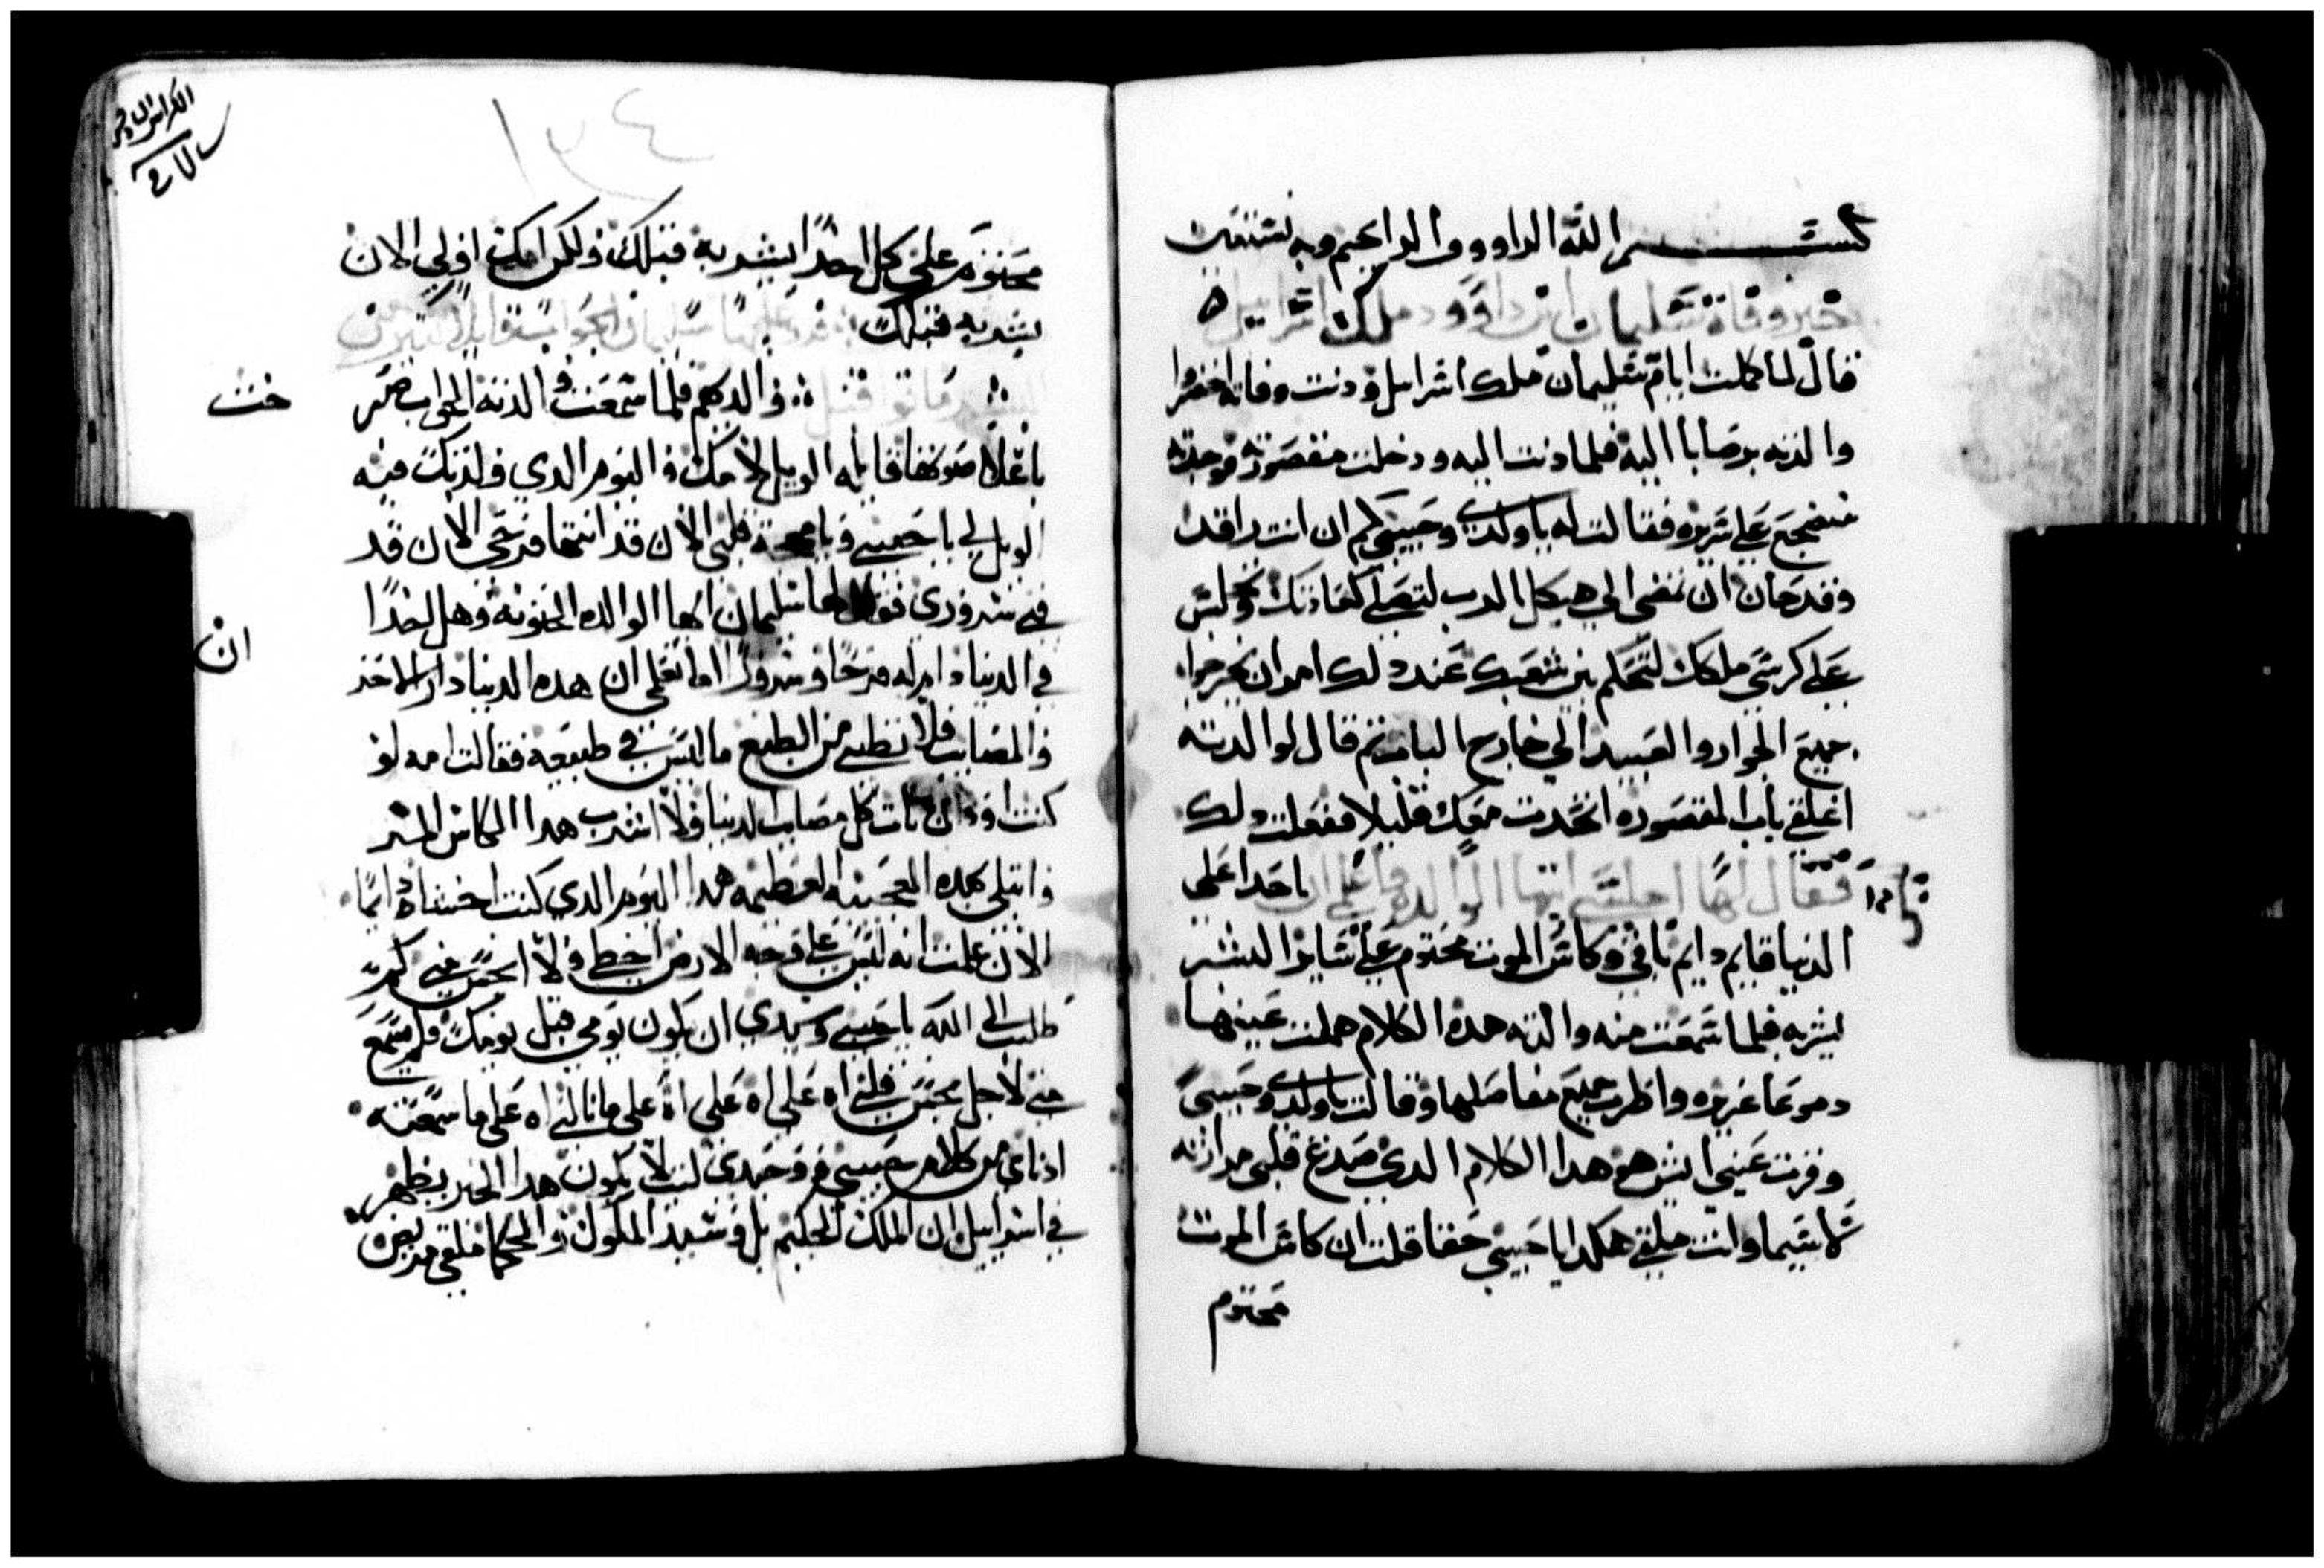 بســـــم الله الراووف الرايحيم وبه نستعين
خبر وفاة سليمان ابن داوود ملك اسراييل
قال لما كملت ايام سليمان ملك اسرايل ودنت وفاته احضرا
والدته برصابا اليه فلما دنت اليه ودخلت مقصورته فوجدته
منضجع علي سريره فقالت له ياولدي وحبيبي كم ان انت راقد
وقد حان ان تمضي الي هيكل الرب لتصلي كعادتك وتجلس
علي كرسي ملكك لتحكم بين شعبك عند دلك امر ان يخرجوا
جميع الجوار والعبيد الي خارج الباب ثم قال لوالدته
اغلقي باب المقصوره اتحدت معك قليلا ففعلت دلك
فقال لها اجلسي ايتها الوالده واعلمي ان ياحدا علي
الدنيا قايم دايم باقي وكاس الموت محتوم علي ساير البشر
يشربه فلما سمعت منه والدته هدا الكلام هملت عينيها
دموعا غزيره واظربت جميع مفاصلها وقالت ياولدي وحبيبي
وقرت عيني ايش هو هدا الكلام الدي صدع قلبي مرارته
لاسيما وانت ملقي هكدا ياحبيبي حقا قلت ان كاس الموت
محتوم
محتوم علي كل احدا يشربه قبلك ولكن امك اولي الان
بشربه قبلك
والدكم فلما سمعت والدته الجواب صر
باعلا صوتها قايله الويل لامك في اليوم الدي ولدتك فيه
الويل لي ياحبيبي ويامهجة قلبي الان قد انتها فرحي الان قد
فني سروري فقال لها سليمان ايها الوالده الحنونه وهل احدا
في الدنيا دايم له فرحا وسرورا اما تعلمي ان هده الدنيا دار الاحز
والمصايب فلا تطلبي من الطبع ما ليس في طبيعه فقالت امه لو
كنت اود ان تات كل مصايب الدنيا ولا اشرب هدا الكاس المر
وابتلي بهده العظيمه هدا اليوم الدي كنت اخشاه دايما
الان علمت انه ليس علي وجه الارض
طلبت الي الله ياحبيبي وسيدي ان يكون يومي قبل يومك فلم يسمع
مني لاجل قلبي اه علي اه علي اه علي ما نالني اه علي ما سمعته
ادناي من كلام حبيبي ووحيدي ليت لا يكون هدا الخبر يظهر
في اسراييل ان الملك الحكيم بل وسيد الملوك والحكما ملقي مريض